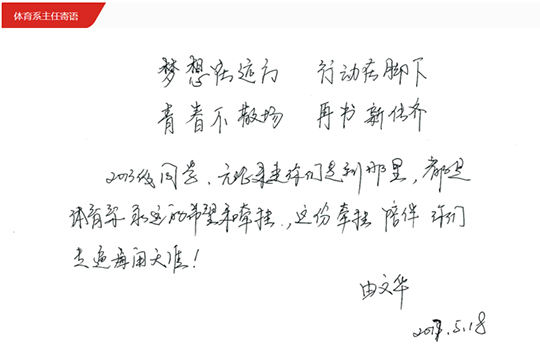 体育系主任寄语
梦想在远方 行动在脚下
青春不散场 再书新传奇
2013级同学、无论未来你们走到哪里，都是
体育系永远的希望和牵挂，这份牵挂陪伴你们
走遍海角天涯！
由文华
2017.5.18